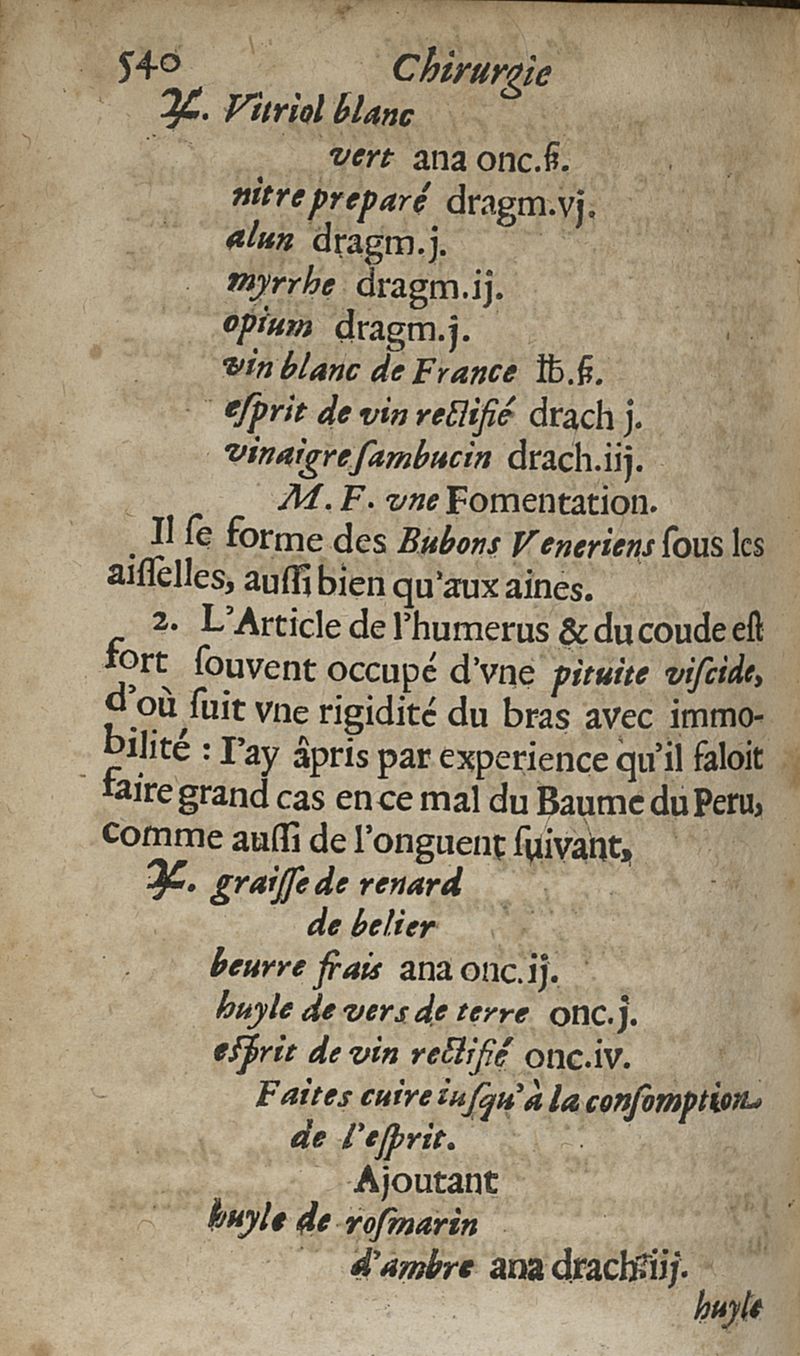 540 Chirurgie
℞. Vitriol blanc
vert ana onc.ß.
nitre preparé dragm.vj.
alun dragm.j.
myrrhe dragm.ij.
opium dragm.j.
vin blanc de France ℔.ß.
eſprit de vin rectifié drach j.
vinaigre ſambucin drach.iij.
M. F. vne Fomentation.
Il ſe forme des Bubons Veneriens ſous les
aiſſelles, auſſi bien qu'aux aines.
2. L'Article de l'humerus & du coude eſt
fort ſouvent occupé d'vne pituite viſcide,
d'où ſuit vne rigidité du bras avec immo-
bilité : I'ay âpris par experience qu'il faloit
faire grand cas en ce mal du Baume du Peru,
comme auſſi de l'onguent ſuivant,
℞. graiſſe de renard
de belier
beurre frais ana onc.ij.
huyle de vers de terre onc.j.
eſprit de vin rectifié onc.iv.
Faites cuire iuſqu'à la conſomption
de l'eſprit.
Ajoutant
huyle de roſmarin
d'ambre ana drach.iij.
huyle